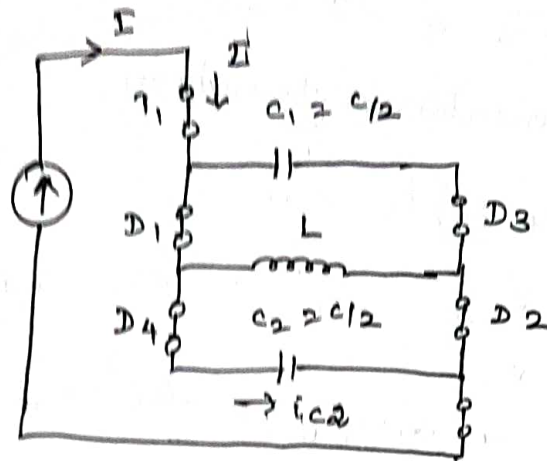 I
T1
I
C1 = C/2
D1
D3
L
D4
C2 = C/2
D2
→ ic2